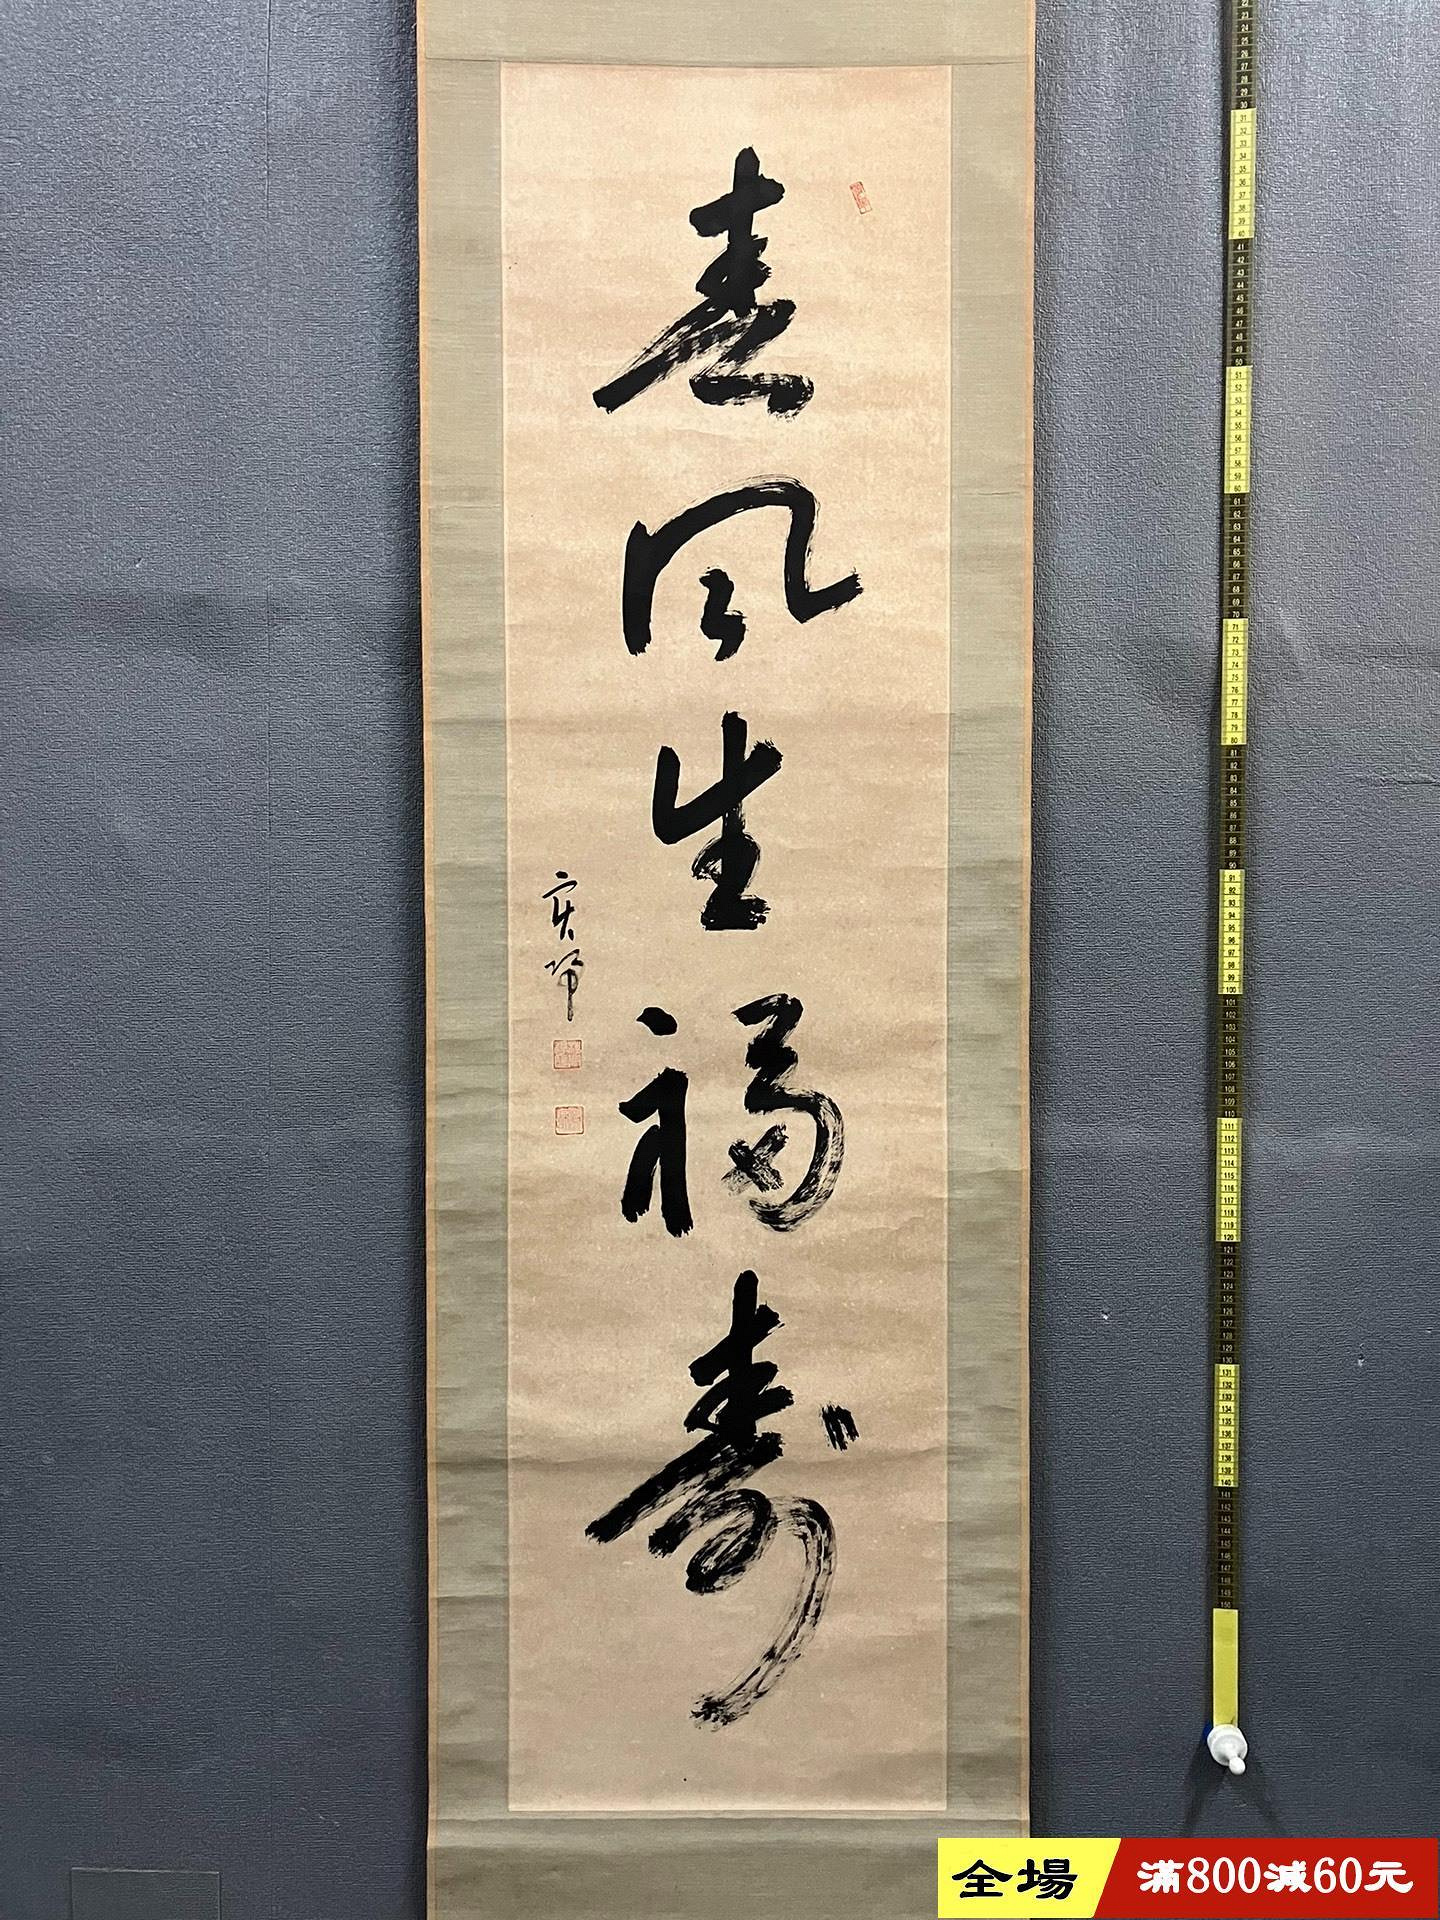 春風生福寿
全場 滿800減60元